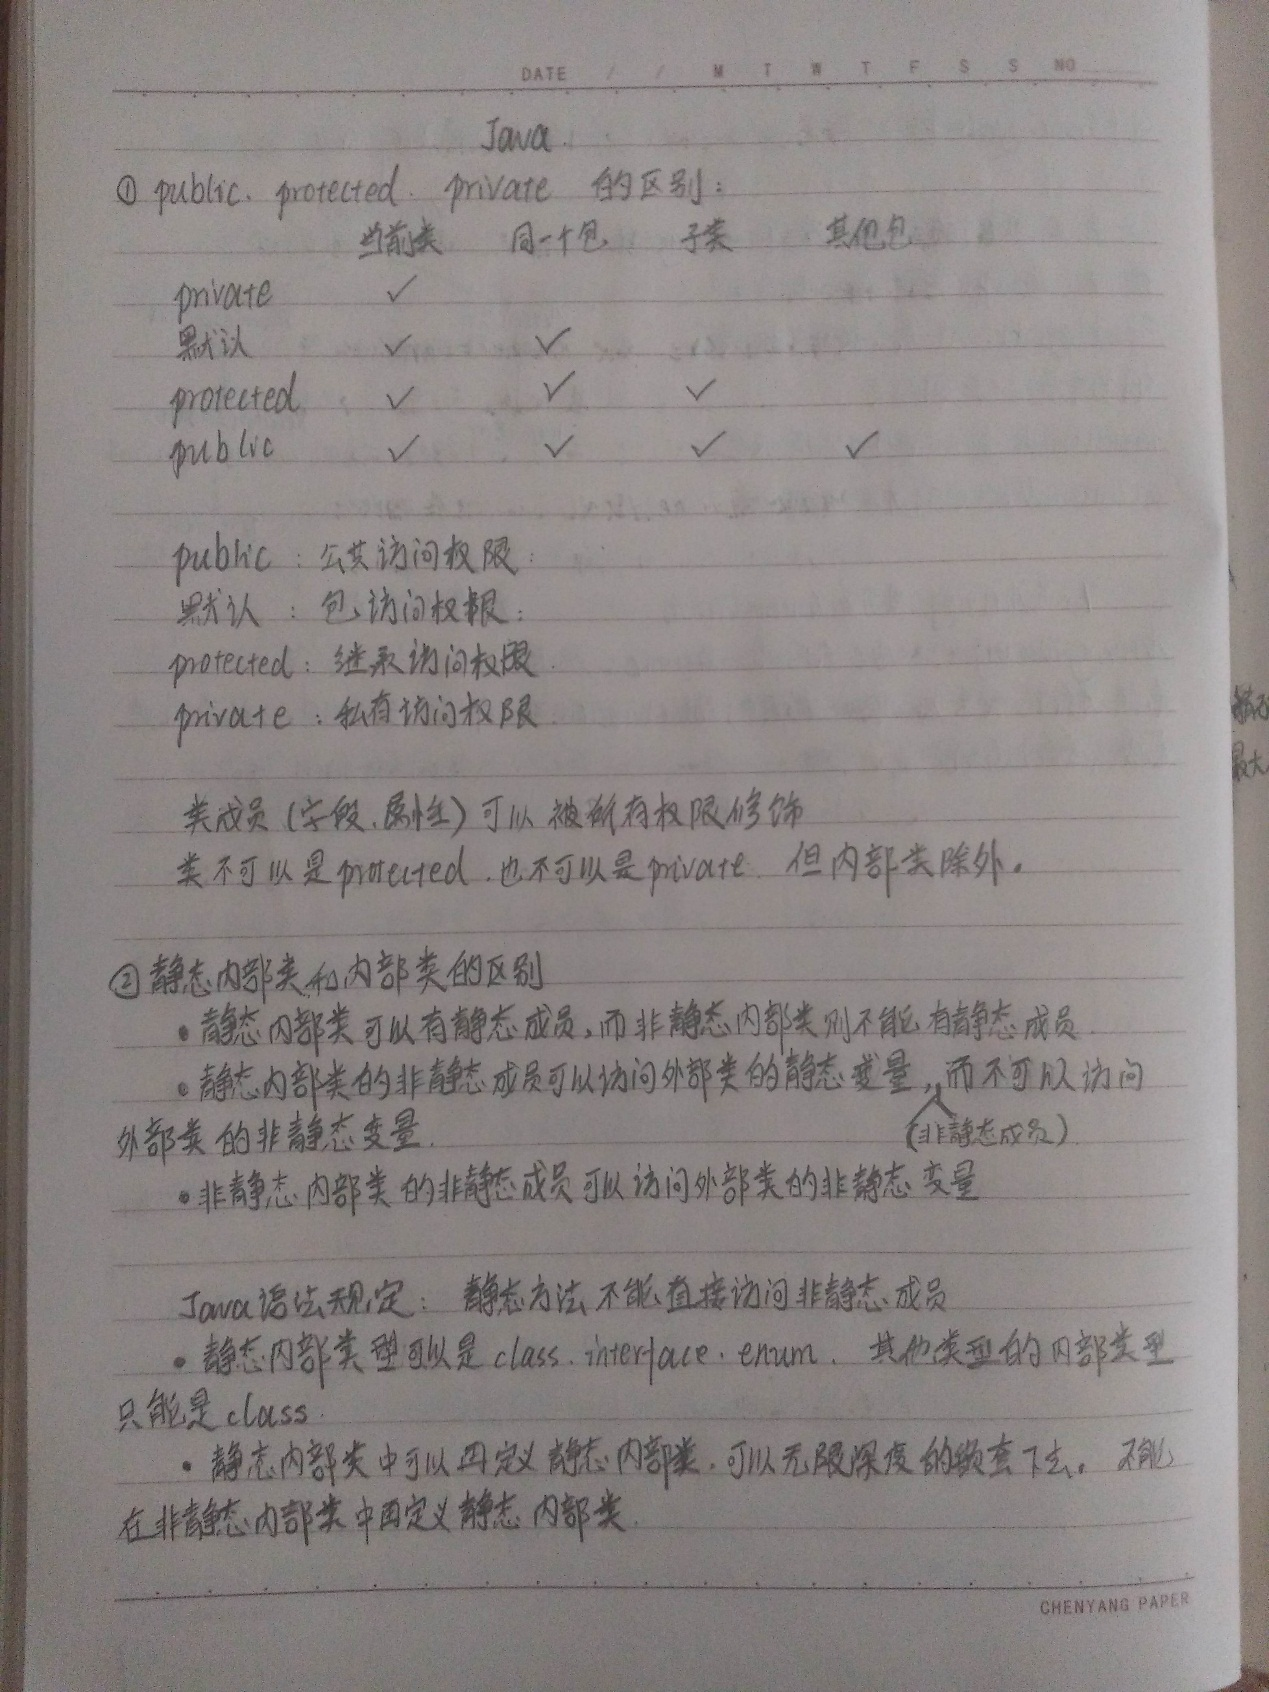 DATE / / M T W T F S S NO
Java.
① public. protected. private 的区别：
当前类 同一个包 子类 其他包
private ✓
默认 ✓ ✓
protected ✓ ✓ ✓
public ✓ ✓ ✓ ✓
public：公共访问权限.
默认：包访问权限：
protected：继承访问权限.
private：私有访问权限
类成员(字段、属性)可以被所有权限修饰
类不可以是protected.也不可以是private. 但内部类除外。
②静态内部类和内部类的区别
•静态内部类可以有静态成员,而非静态内部类则不能有静态成员
•静态内部类的非静态成员可以访问外部类的静态变量,而不可以访问
(非静态成员)
外部类的非静态变量.
•非静态内部类的非静态成员可以访问外部类的非静态变量
Java语法规定：静态方法不能直接访问非静态成员
•静态内部类型可以是class.interface.enum. 其他类型的内部类型
只能是class.
•静态内部类中可以再定义静态内部类.可以无限深度的嵌套下去。不能
在非静态内部类中再定义静态内部类.
CHENYANG PAPER